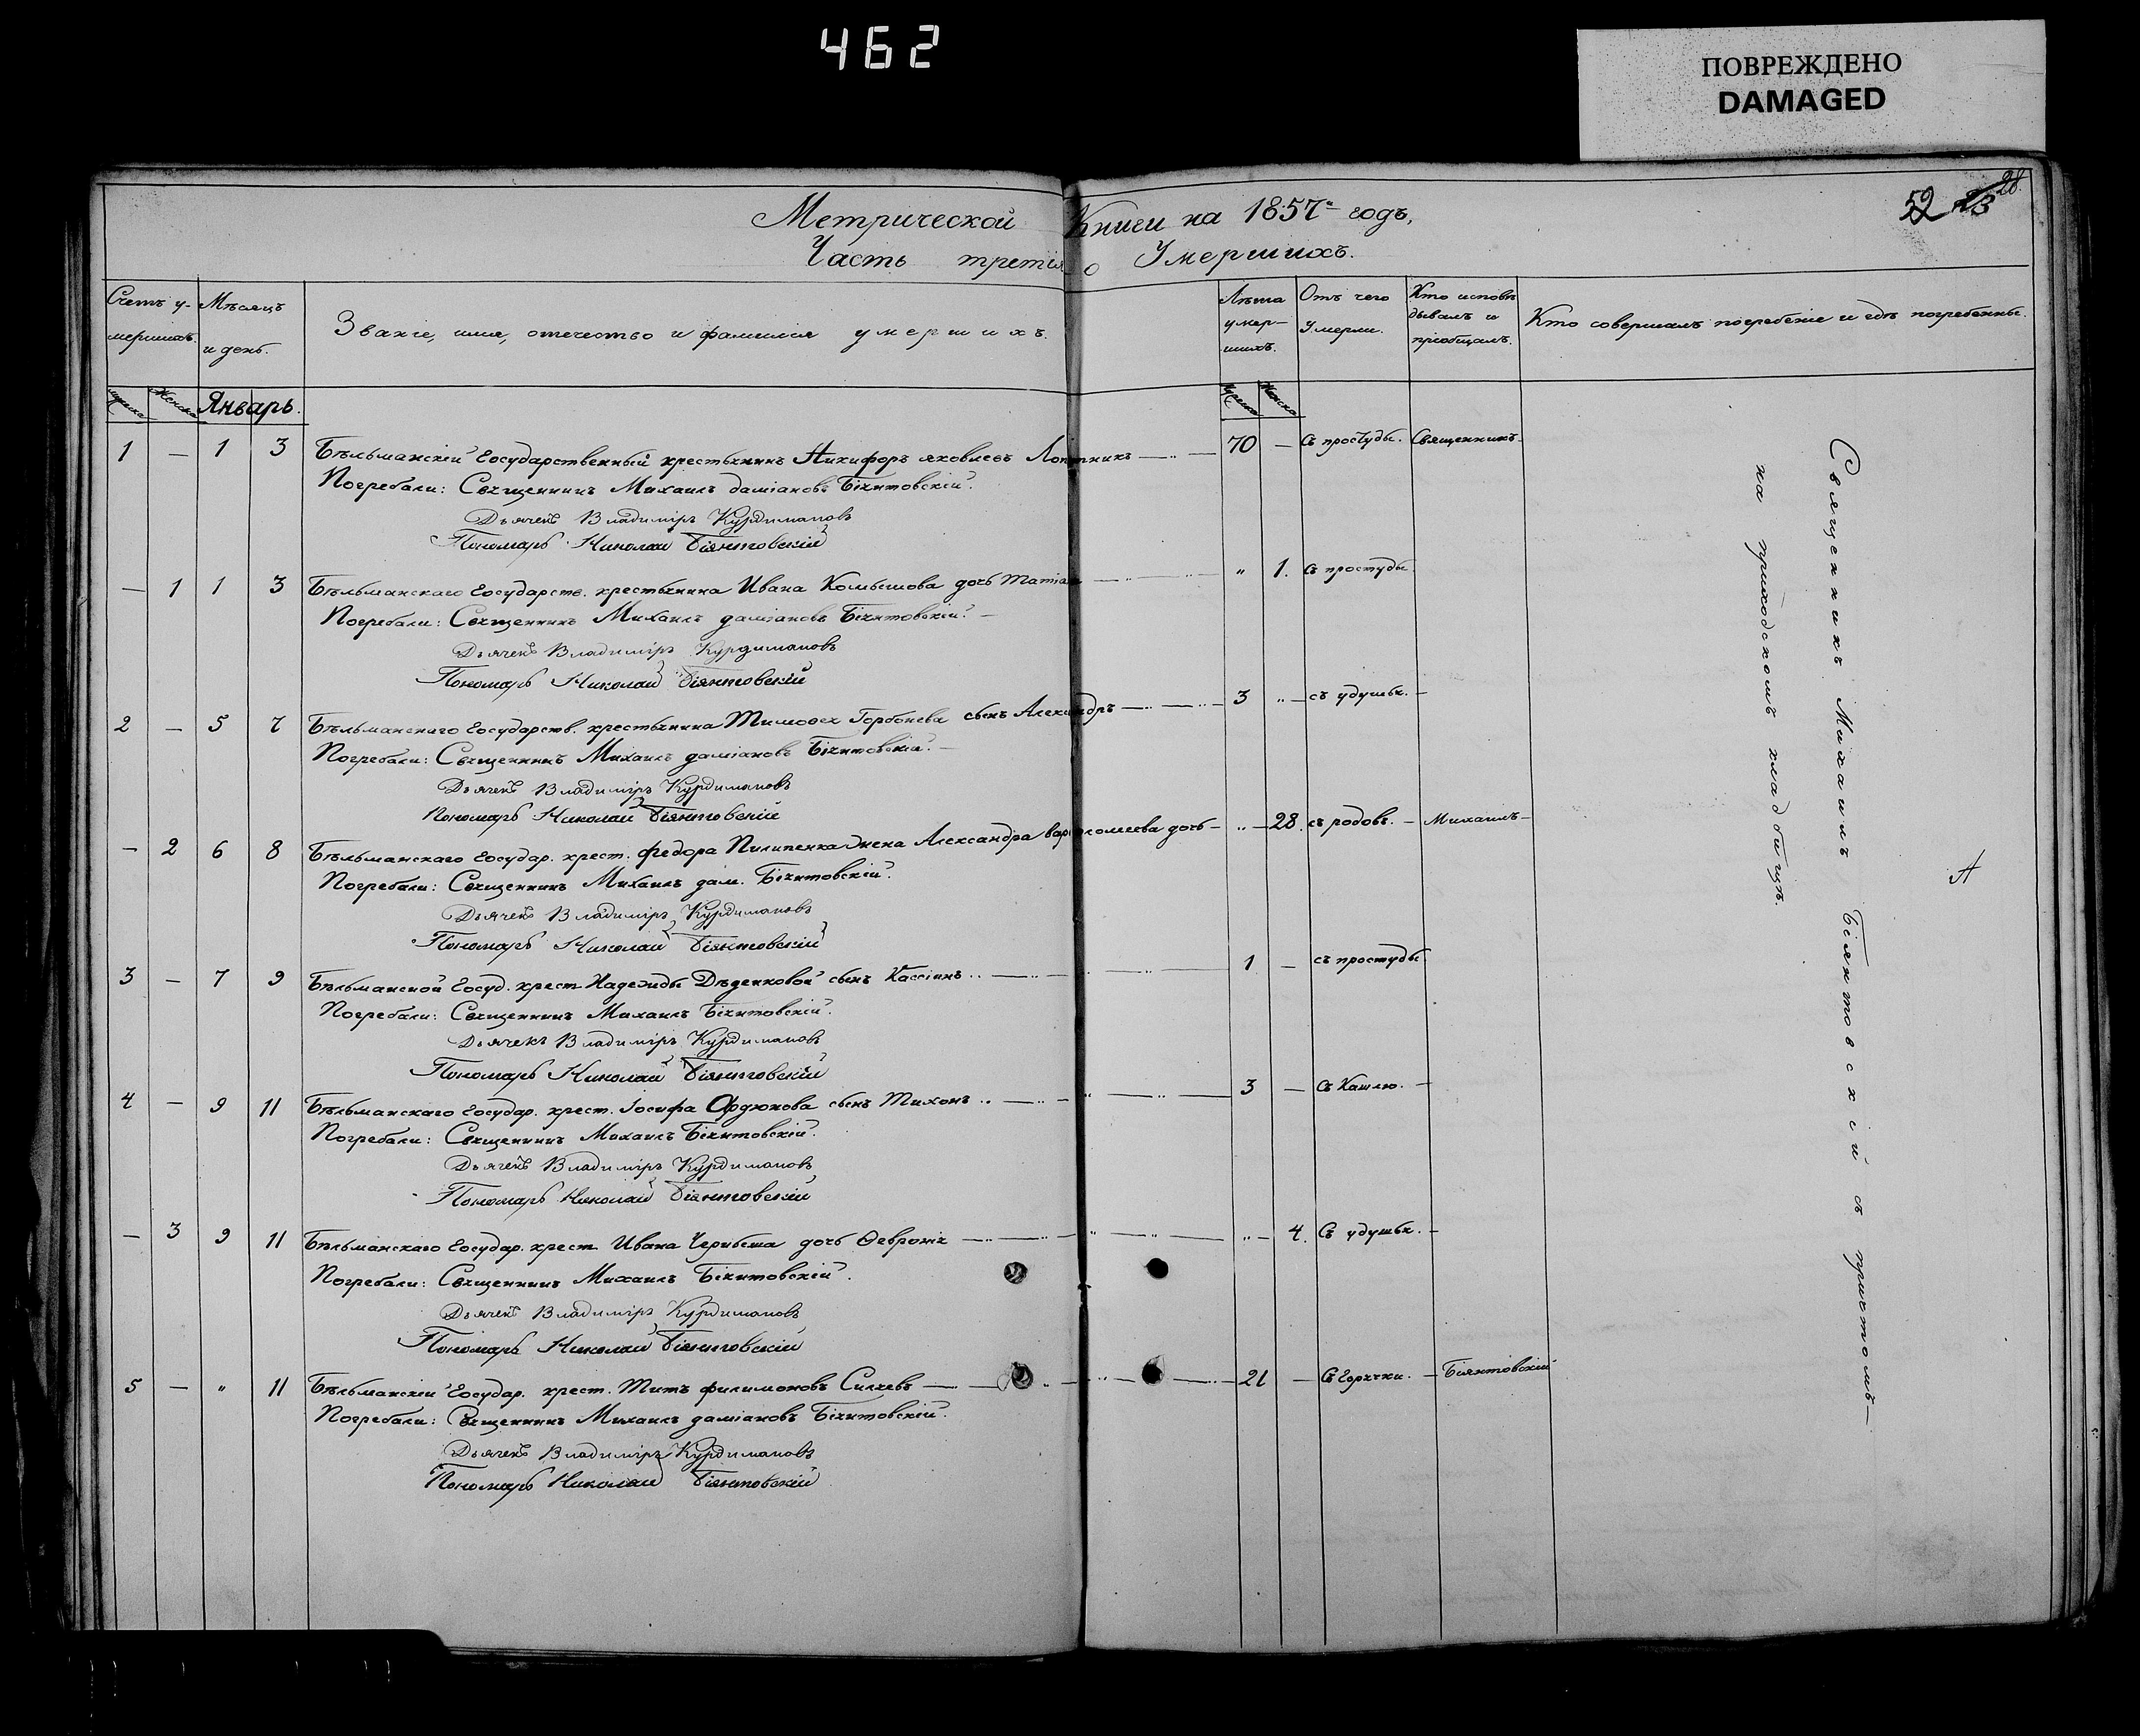 462
ПОВРЕЖДЕНО
DAMAGED
52 28.
Метрической Книги на 1857й годъ,
Часть третія о Умершихъ.
Счетъ у-мершихъ. Мѣсяцъ и день. Званіе, имя, отечество и фамилія умершихъ. Лѣта умер-шихъ. Отъ чего умерли. Кто исповѣдывалъ и пріобщалъ. Кто совершалъ погребеніе и гдѣ погребенны.
Мужска Женска Январь. Мужска Женска
1 — 1 3 Бѣльманскій Государственный крестьянинъ Никифоръ яковлевъ 70 — Съ простуды. Священникъ
Погребали: Священникъ Михаилъ даміановъ Біянтовскій.
Дьячекъ Владиміръ Курдимановъ
Пономарь Николай Біянтовскій
— 1 1 3 Бѣльманскаго Государств. крестьянина Ивана Комышова дочь " 1. Съ простуды
Погребали: Священникъ Михаилъ даміановъ Біянтовскій. —
Дьячекъ Владиміръ Курдимановъ
Пономарь Николай Біянтовскій
2 — 5 7 Бѣльманскаго Государств. крестьянина Тимоѳея Горбонева сынъ Александръ 3 " — съ удушья. —
Погребали: Священникъ Михаилъ даміановъ Біянтовскій. —
Дьячекъ Владиміръ Курдимановъ
Пономарь Николай Біянтовскій
— 2 6 8 Бѣльманскаго Государ. крест. федора Пилипенка жена Александра варѳоломеева дочь — " — 28. съ родовъ. — Михаилъ —
Погребали: Священникъ Михаилъ дам. Біянтовскій.
Дьячекъ Владиміръ Курдимановъ
Пономарь Николай Біянтовскій
3 — 7 9 Бѣльманской Госуд. крест. Надежды Дѣденковой сынъ Кассіянъ 1 — съ простуды
Погребали: Священникъ Михаилъ Біянтовскій.
Дьячекъ Владиміръ Курдимановъ
Пономарь Николай Біянтовскій
4 — 9 11 Бѣльманскаго Государ. крест. Іосифа Ордюкова сынъ Тихонъ 3 — Съ Кашлю. —
Погребали: Священникъ Михаилъ Біянтовскій.
Дьячекъ Владиміръ Курдимановъ
Пономарь Николай Біянтовскій
— 3 9 11 Бѣльманскаго Государ. крест. Ивана дочь Ѳевронія " — 4. Съ удушья. —
Погребали: Священникъ Михаилъ Біянтовскій.
Дьячекъ Владиміръ Курдимановъ
Пономарь Николай Біянтовскій
5 — " 11 Бѣльманскій Государ. крест. Титъ филимоновъ Силаевъ 21 — Съ Горячки. — Біянтовскій
Погребали: Священникъ Михаилъ даміановъ Біянтовскій.
Дьячекъ Владиміръ Курдимановъ
Пономарь Николай Біянтовскій
Священникъ Михаилъ Біянтовскій съ причтомъ —
на приходскомъ кладбищѣ.